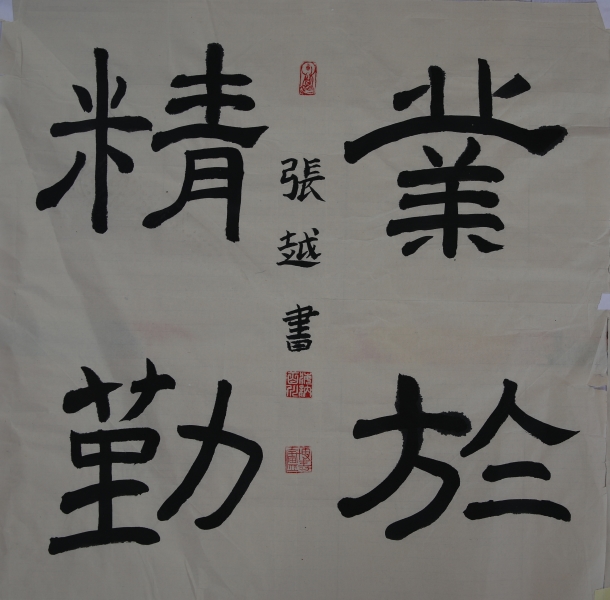 業精
於勤
張越書